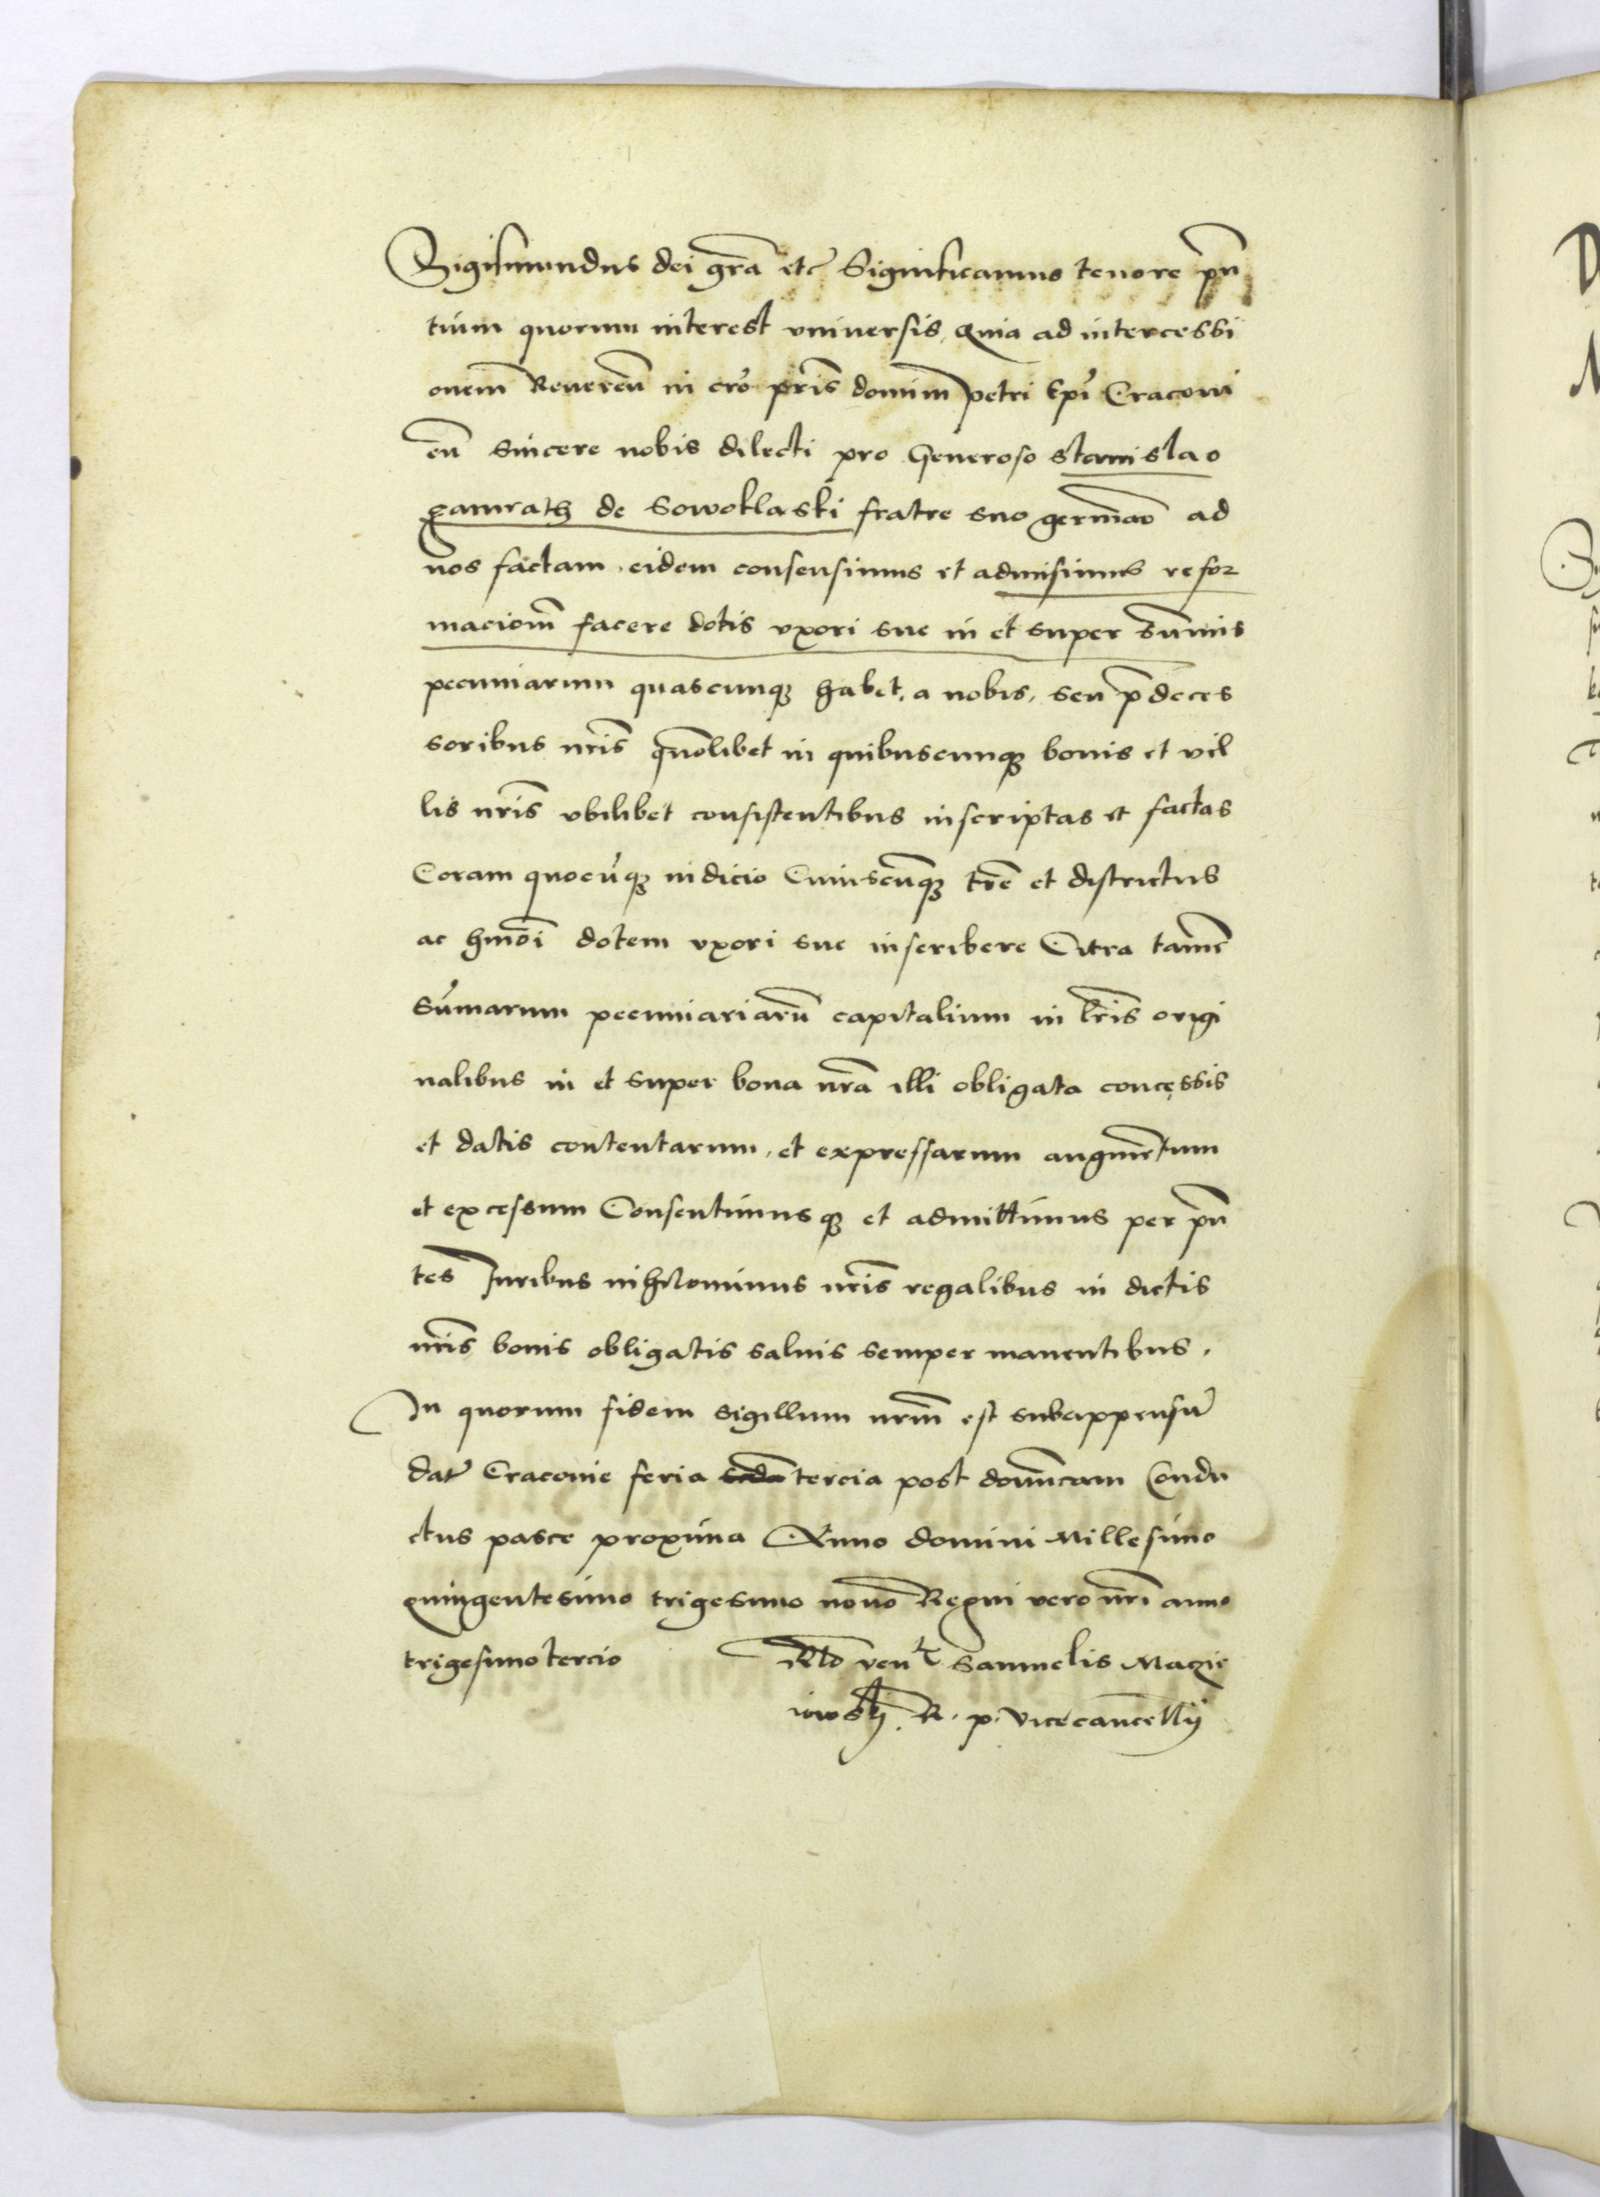 Sigismundus dei gra etc Significamus tenore pn
tium quorum interest vniuersis, Quia ad intercessi
onem Reueren in cro pris domini petri Epi Cracoui
en sincere nobis dilecti pro Generoso Stanislao
gamrath de Sowoklaski fratre suo germano ad
nos factam, eidem consensimus et admisimus refor
macionem facere dotis vxori sue in et super summis
pecuniarum quascunq habet, a nobis, seu pdeces
soribus nris quolibet in quibuscunq bonis et vil
lis nris vbilibet consistentibus inscriptas et factas
Coram quocunq iudicio Cuiuscunq tre et districtus
ac hmoi dotem vxori sue inscribere Citra tamen
summarum pecuniariarum capitalium in lris origi
nalibus in et super bona nra illi obligata concessis
et datis contentarum, et expressarum augmentum
et excessum Consentimusq et admittimus per pn
tes Iuribus nihilominus nris regalibus in dictis
nris bonis obligatis saluis semper manentibus.
In quorum fidem sigillum nrm est subappensum
dat Cracouie feria scda tercia post dominicam Condu
ctus pasce proxima Anno domini Millesimo
quingentesimo trigesimo nono Regni vero nri anno
trigesimotercio
Rlo ven Samuelis Maczie
iowskij. R. p. Vicecancellij